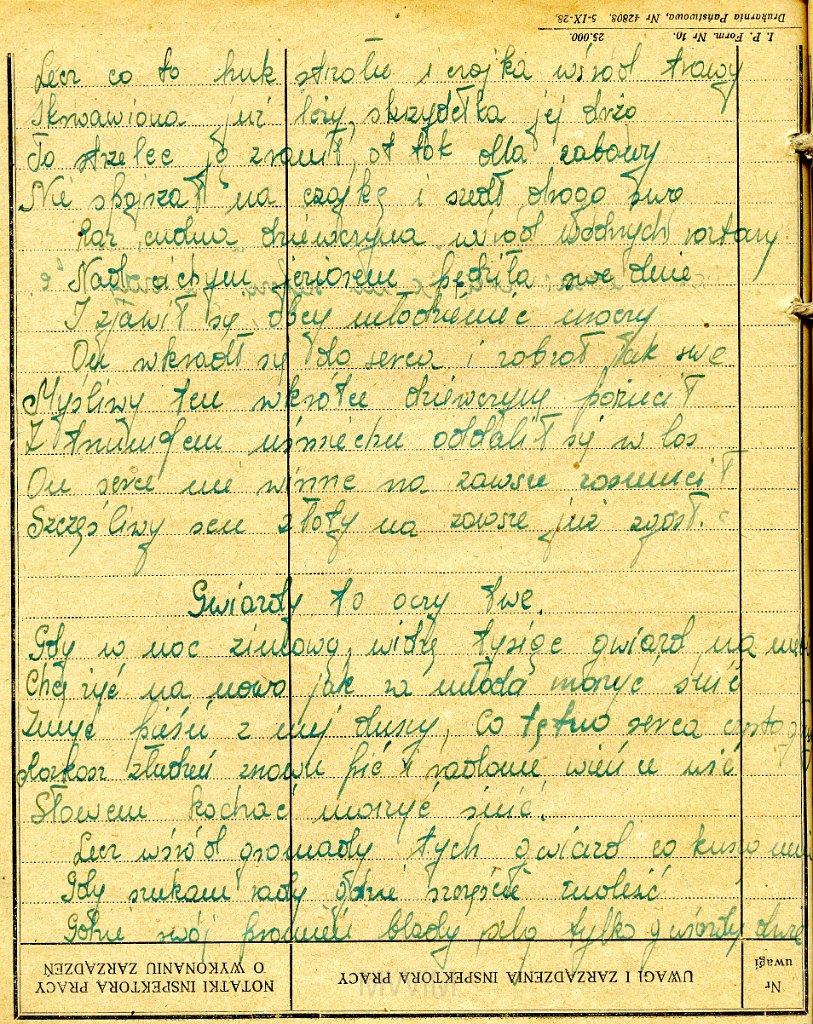 Drukarnia Państwowa, Nr 42808. 5-IX-28.
I. P. Form. Nr 10. 25.000.
Lecz co to huk strzału i czajka wśród trawy
Skrwawiona już leży, skrzydełka jej drżą
To strzelec ją zranił, ot tak dla zabawy
Nie spojrzał na czajkę i szedł drogą swą
Raz cudna dziewczyna wśród wodnych
Nad cichym jeziorem pędziła swe dnie
I zjawił się obcy młodzieniec uroczy
On wkradł się do serca i zabrał jak swe
Myśliwy ten wkrótce dziewczynę porzucił
Z triumfem uśmiechu oddalił się w las
On serce nie winne na zawsze zasmucił
Szczęśliwy sen złoty na zawsze już zgasł.
Gwiazdy to oczy twe.
Gdy w noc zimową widzę tysiąc gwiazd na
Chcę żyć na nowo jak za młodu marzyć śnić
pieśń z mej duszy, co tętno serca
Rozkosz złudzeń znowu pić i wień
Słowem kochać marzyć śnić.
Lecz wśród gromady tych gwiazd co kuszą
Gdy szukam rady gdzie szczęście znaleść
swój promień blady ślą tylko gwiazdy dwie
NOTATKI INSPEKTORA PRACY
O WYKONANIU ZARZĄDZEŃ
UWAGI I ZARZĄDZENIA INSPEKTORA PRACY
Nr
uwagi